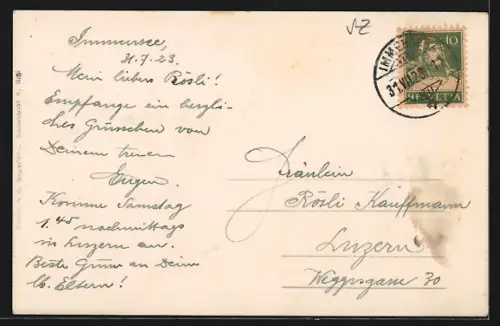 Immensee,
31.7.23.
Mein liebes Rösli!
Empfange ein herzli-
ches Grüsschen von
Deinem treuen
Eugen.
Komme Samstag
1.45 nachmittags
in Luzern an.
Beste Grüsse an Deine
lb. Eltern!
SZ
10
HELVETIA
31.VII.23
Fräulein
Rösli Kauffmann
Luzern
Weggisgasse 30